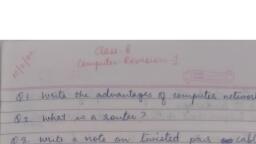 Class-8
Computer Revision-1
Q1. Write the advantages of computer network
Q2. What is a router?
Q3. Write a note on twisted pair cabl